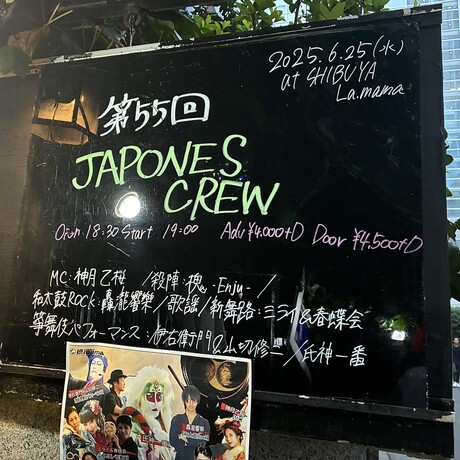 2025.6.25(水)
at SHIBUYA
La.mama
第55回
JAPONES
CREW
Open 18:30 Start 19:00 Adv ¥4.000+D Door ¥4,500+D
MC:神月乙桜 /殺陣:槐。-Enju-/
和太鼓ROCK:轟龍響樂/歌謡/新舞踊:ミライ&春蝶会
箏舞伎パフォーマンス:伊右衛門&山切修二/氏神一番